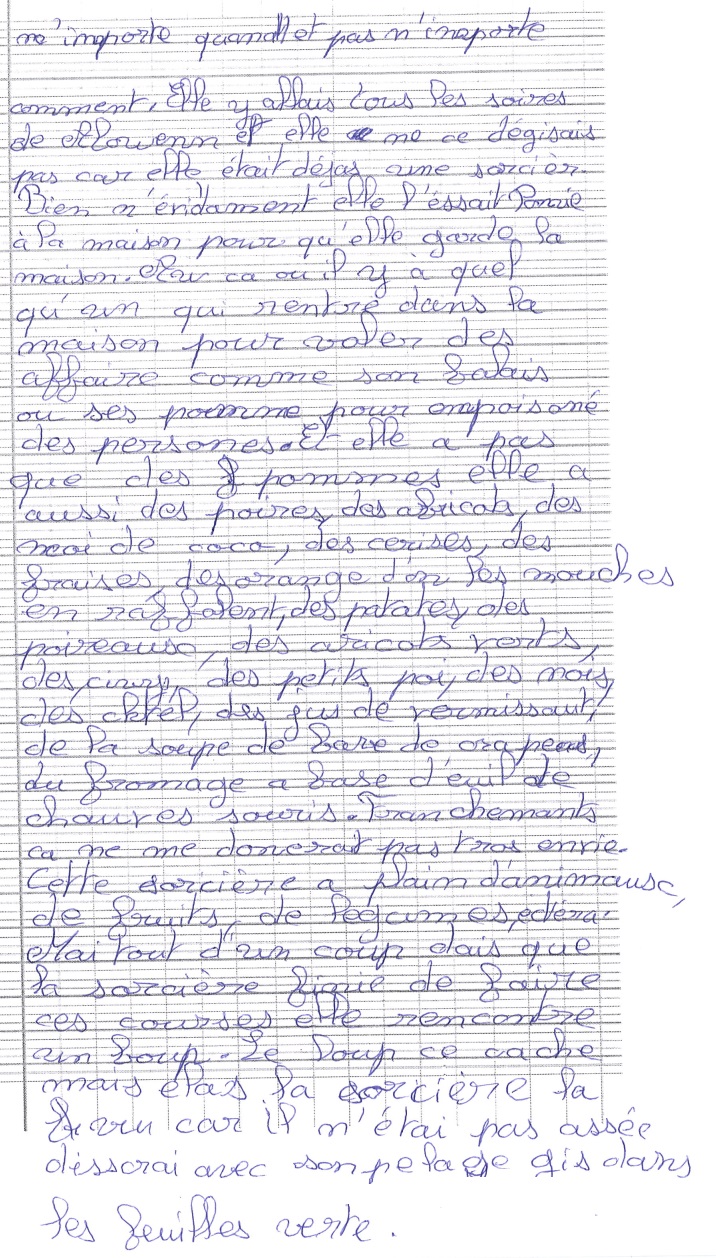 n'importe quand et pas n'inaporte
comment. Elle y allais tous les soires
de Allowenn et elle ne ce dégisais
pas car elle était déjas une sorcièr.
Bien n'évidament elle l'éssait
à la maison pour qu'elle garde la
maison. Au ca ou il y à quel
qu'un qui rentre dans la
maison pour voler des
affaire comme son balais
ou ses pomme pour empoisoné
des persones. Et elle a pas
que des pommes elle a
aussi des poires, des abricots, des
noi de coco, des cerises, des
fraises, des orange d'on les mouches
en raffolent, des patates, des
poireause, des aricots verts,
des, des petits poi, des nois,
des, des jus de vermissaut,
de la soupe de bave de crapeau,
du fromage a base d'euil de
chauves souris. Franchemants
ca ne me donerait pas tros envie.
Cette sorcière a plain d'animause,
de fruits, de legumes, edtèra.
Mai tout d'un coup dais que
la sorcière finie de faire
ces courses elle rencontre
un loup. Le loup ce cache
mais élas la sorcière la
vu car il n'étai pas assée
déssorai avec son pelage gis dans
les feuilles verte.